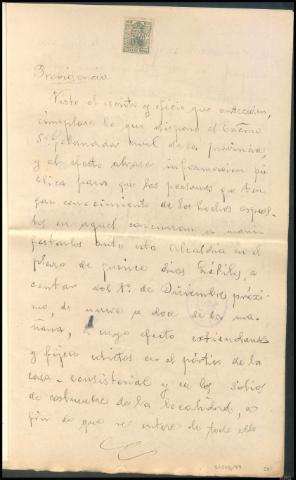 Providencia
Visto el escrito y oficio que anteceden,
cúmplase lo que dispone el Excmo
Sr. Gobernador civil de la provincia,
y al efecto ábrase información pú
blica para que las personas que ten
gan conocimiento de los hechos expues
tos en aquel concurran a mani
festarlos ante esta Alcaldía en el
plazo de quince días hábiles, a
contar del 1º de Diciembre próxi
mo, de nueve a doce de la ma
ñana, a cuyo efecto
y fíjese edictos en el pórtico de la
casa-consistorial y en los sitios
de costumbre de la localidad, a
fin de que se entere de todo ello